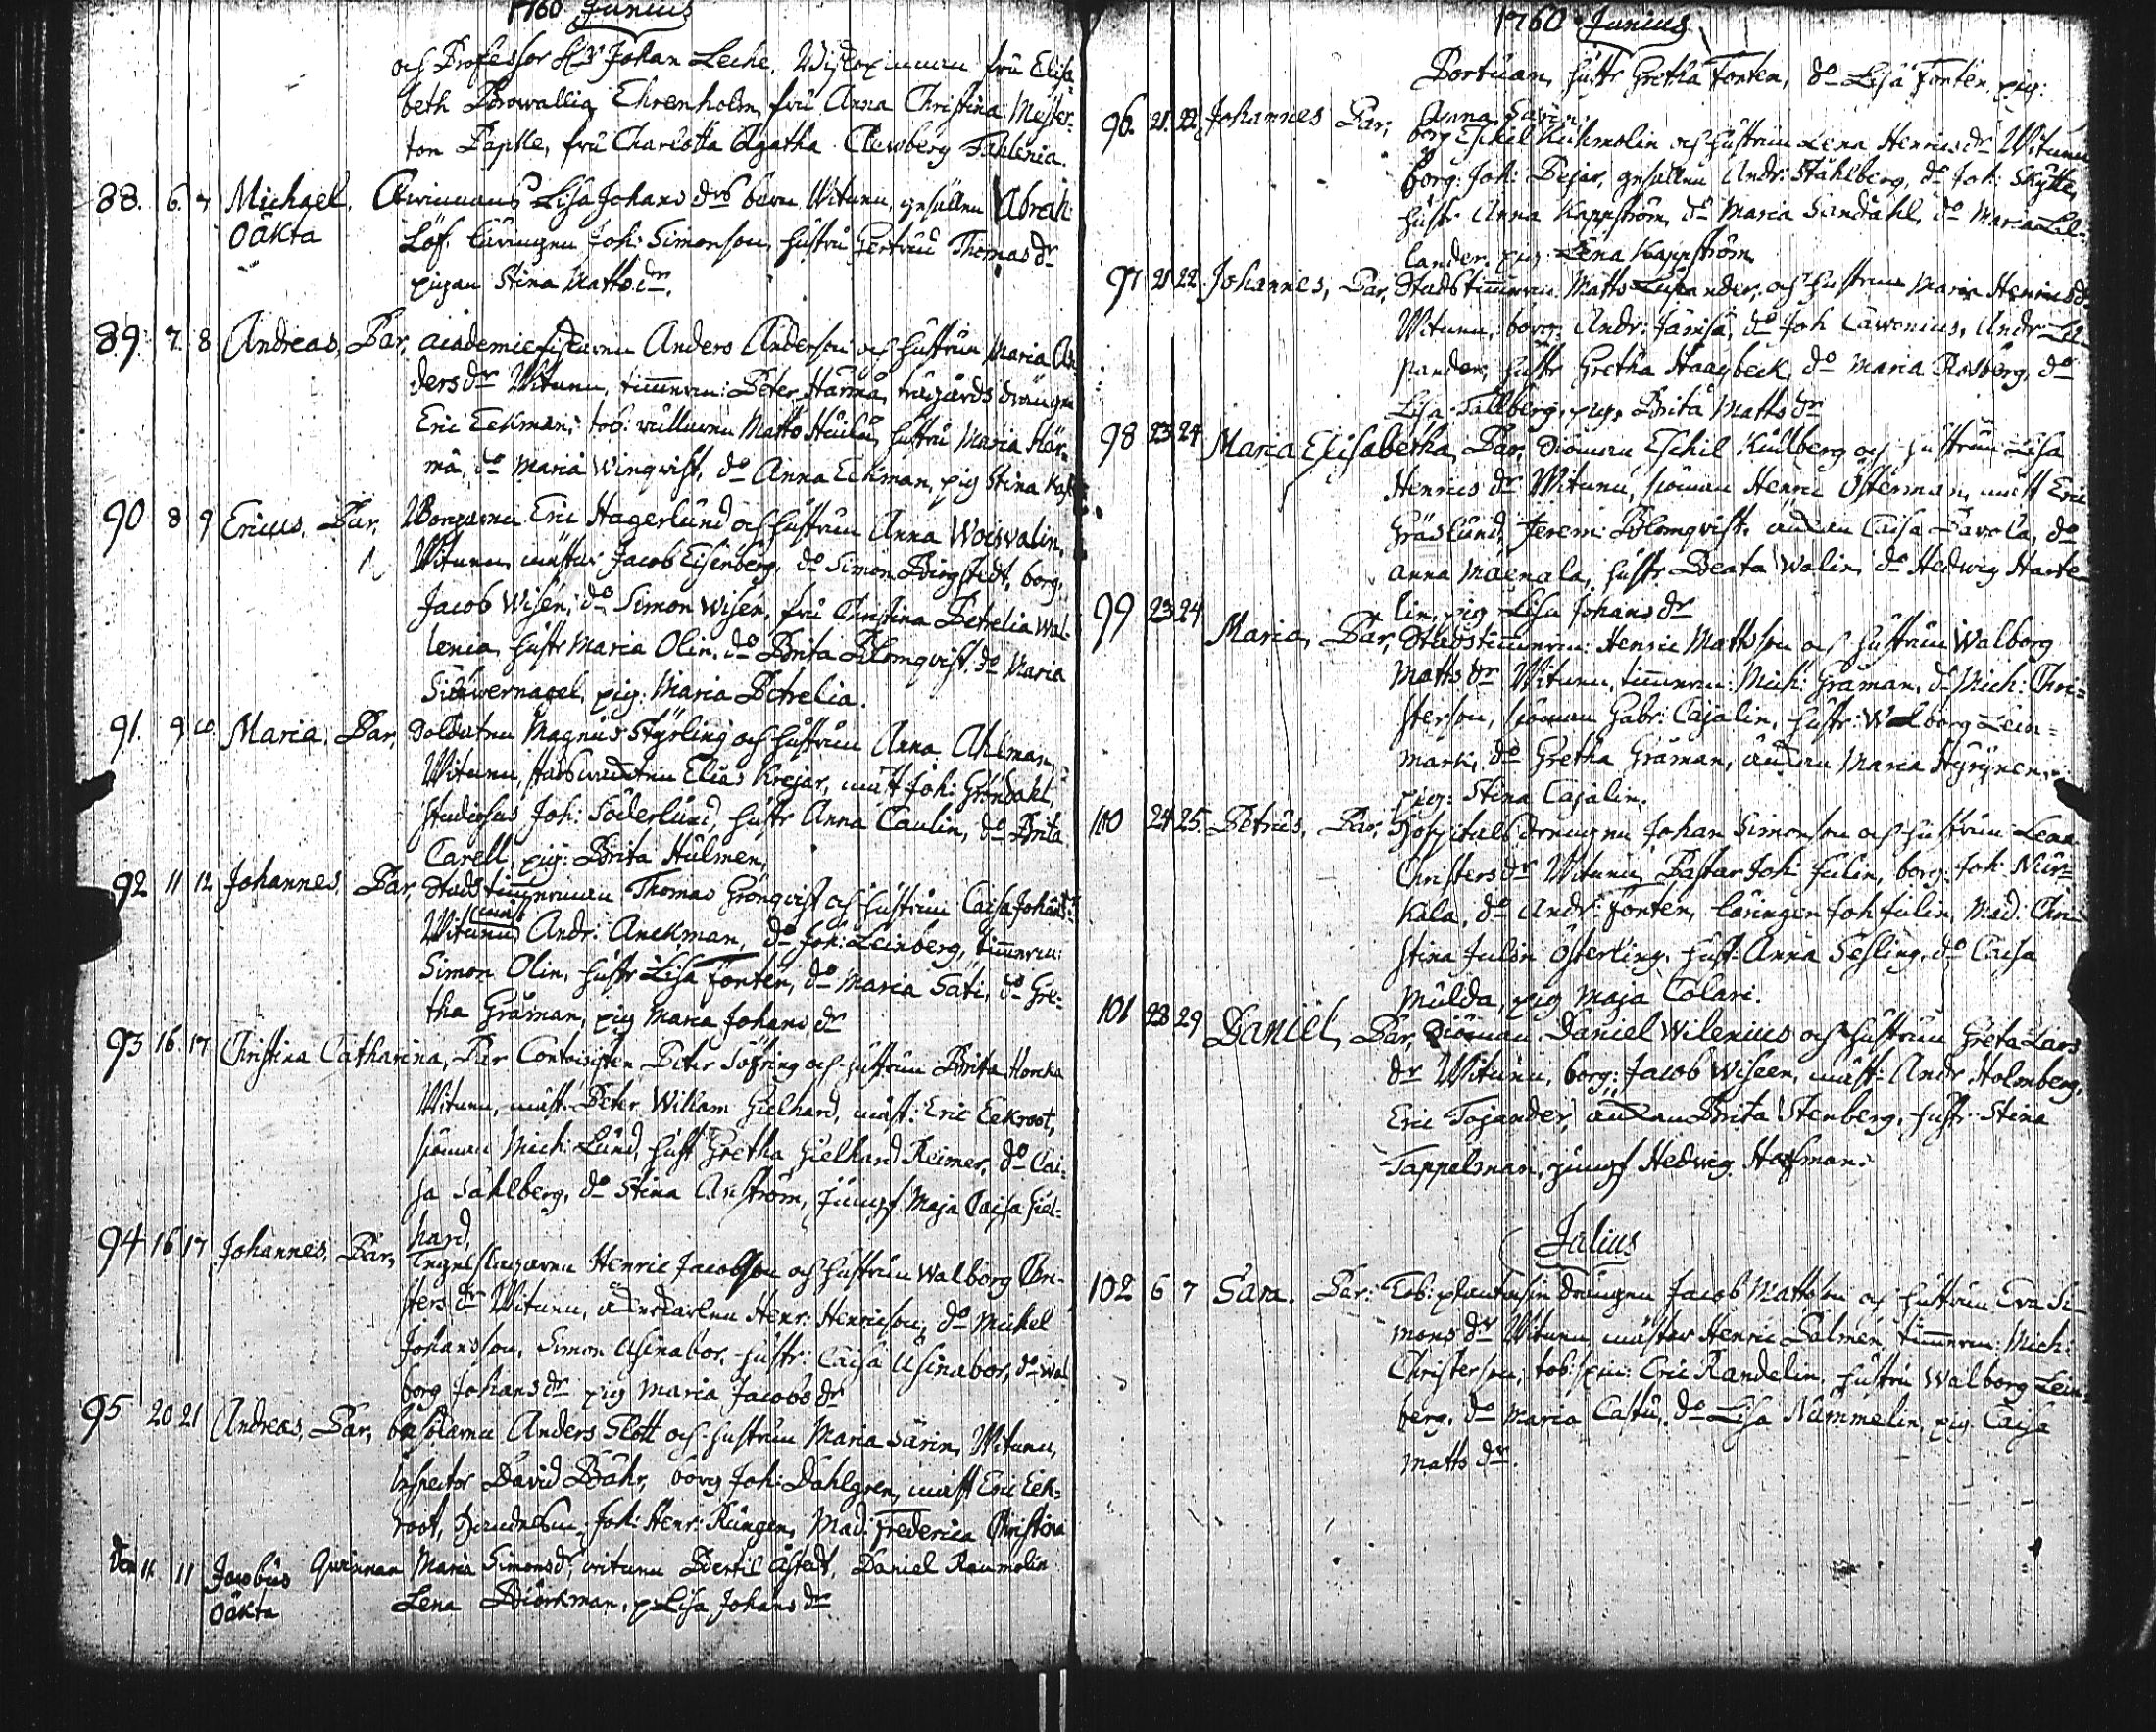 1760 Junius
och Professor Hr Johan Leche, fru Elisa-
beth Browallia Ehrenholm, fru Anna Christina Mester-
ton Paple, fru Charlotta Agatha Clewberg Fahlenia.
88. 6. 7 Michael, Qwinnans Lisa Johans drs barn Witnen, gesällen Abrah:
Oäkta Löf. läringen Joh: Simonson, hustru Gertrud Thomas dr
pigan Stina Matts dr.
89. 7. 8 Andreas, Par, academiefiscarnn Anders Anderson och hustrun Maria An-
ders dr Witnen, timmerm: Peter Härmä, trägårds drängn
Eric Eckman, tob: Matts hustru Maria Här-
mä, do Maria Winqvist, do Anna Eckman, pig Stina
90 8 9 Ericus, Par, Borgarnn Eric Hagerlund och hustrun Anna Woivalin,
Witnen mästar Jacob Eisenberg, do Simon Bergstedt, borg:
Jacob Wisen, do Simon Wisen, fru Christina Petrelia Wal-
lenia, hustr Maria Olin, do Brita Blomqvist, do Maria
Silfwernagel, pig: Maria Petrelia.
91. 9 10 Maria, Par, Soldaten Magnus Styrling och hustrun Anna Ahlman,
Witnen, Elias Krejar, mäst Joh: Gröndahl,
studiosus Joh: Söderlund, hustr Anna Caulin, do Brita
Carell, pig: Brita Hulmen,
92 11 12 Johannes, Par, Stadstimmerman Thomas Grönqvist och hustrun Caisa Johans dr
Witnen Andr: Anckman, do Joh: Leinberg, timmerm:
Simon Olin, hustr Lisa Fonten, do Maria Säti, do Gre-
tha Gråman, pig Maria Johans dr
93 16. 17 Christina Catharina, Par Contoristen Peter Söfring och hustrun Brita Horcka
Witnen, mäst: Peter Willam Gielhard, mäst: Eric Eekroot,
sjöman Mich: Lund, hust Gretha Gielhard Reimer, do Cai-
sa Sahlberg, do Stina Anström, Jungf Maja Caisa Giel-
hard.
94 16 17 Johannes, Par, Tegelslagarenn Henric Jacobson och hustrun Walborg Chri-
sters dr Witnen, Henr: Henricson, do Michel
Johansson, Simon Usinabor, hustr: Caisa Usinabor, do Wal
borg Johans dr pig Maria Jacobs dr
95 20 21 Andreas, Par, Anders Slott och hustrun Maria Särin, Witnen,
Inspector David Bähr, borg Joh: Dahlgren, mäst Eric Eek-
root, Joh: Henr: Rungen, Mad: Frederica Christina
Den 11. 11 Jacobus Qwinnan Maria Simons dr, witnen Bertil Åstedt, Daniel Raumolin
Oäkta Lena Björkman, p Lisa Johans dr
1760 Junius
Portuan, hustr Gretha Fonten, do Lisa Fonten, pig:
Anna Särin.
96. 21. 22 Johannes Par, borg Eschil Kuhmolin och hustrun Lena Henrics dr Witnen
borg: Joh: Pejar, gesällen Andr: Ståhlberg, do Joh: Skytte,
hustr Anna Kappström, do Maria Sandahl, do Maria Lal-
lander. pig: Lena Kappström
97 21 22 Johannes, Par, Stadstimmerm: Matts Lupander, och hustrun Maria Henrics dr
Witnen, borg: Andr: Jämsä, do Joh Cawonius, Andr: Lu-
pander, hustr Gretha Haagbeck, do Maria Rosberg, do
Lisa Tallberg, pig: Brita Matts dr
98 23 24 Maria Elisabetha, Par, Sjöman Eschil Kullberg och hustrun Lisa
Henrics dr Witnen, sjöman Henric Österman, mäst Eric
Gräslund, Jerem: Blomqvist, änkan Caisa Pavola, do
Anna Maenala, hustr Beata Wolin, do Hedwig Harte-
lin, pig Lisa Johans dr
99 23 24 Maria, Par, Stadstimmerm: Henric Mattsson och hustrun Walborg
Matts dr Witnen, timmerm: Mich: Gråman, do Mich: Chri-
sterson, sjöman Gabr: Cajalin, hustr: Walborg Lein-
mark, do Gretha Gråman, änkan Maria Hyrynen,
pig: Stina Cajalin.
100 24 25. Petrus, Par, Hospitalsdrengen Johan Simonson och hustrun Lena
Christers dr Witnen, Pastor Joh: Julin, borg: Joh: Nur-
kala, do Andr: Fonten, läringen Joh Julin, Mad: Chri-
stina Julin Österling, hust: Anna Sesling, do Caisa
Mulda, pig Maja Colari.
101 28 29 Daniel, Par, Sjöman Daniel Wilenius och hustrun Greta Lars
dr Witnen, borg: Jacob Wiseen, mäst: Andr Holmberg,
Eric Tojander, änkan Brita Stenberg, hustr: Stina
Tappelman, jungf Hedwig Hofman.
Julius
102 6 7 Sara. Par: Tob: plantasie drängen Jacob Mattsson och hustrun Eva Si-
mons dr Witnen mästar Henric Salmen, timmerm: Mich:
Christerson, tob: spin: Eric Randelin, hustru Walborg Lein-
berg, do Maria Castu, do Lisa Nummelin, pig Caisa
Matts dr.